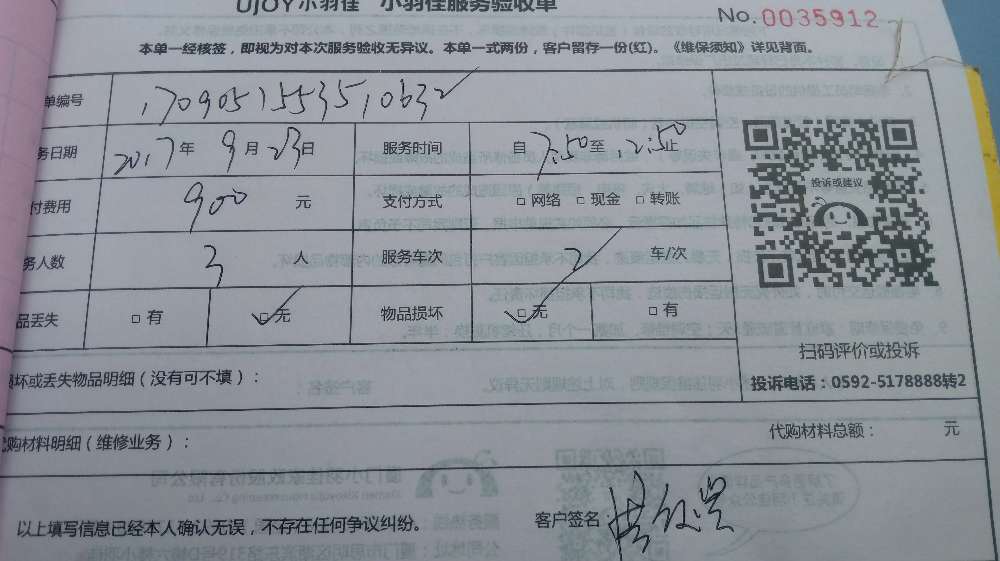 UJOY小羽佳 小羽佳服务验收单
No.0035912
本单一经核签，即视为对本次服务验收无异议。本单一式两份，客户留存一份(红)。《维保须知》详见背面。
单编号 1709051553510632
务日期 2017年9月23日 服务时间 自7:50至12:50止
付费用 900元 支付方式 □网络 □现金 □转账
务人数 3人 服务车次 2 车/次
品丢失 □有 □无 物品损坏 □无 □有
投诉或建议
扫码评价或投诉
投诉电话：0592-5178888转2
损坏或丢失物品明细（没有可不填）：
代购材料明细（维修业务）：
代购材料总额： 元
以上填写信息已经本人确认无误，不存在任何争议纠纷。
客户签名：